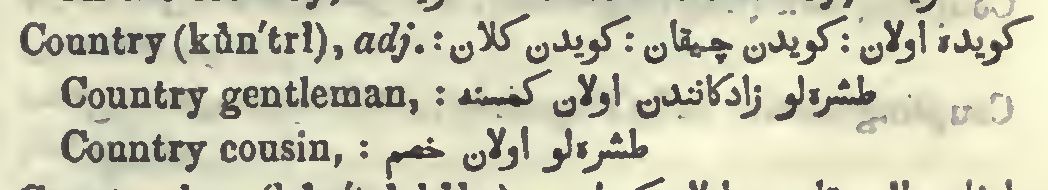 Country (kŭn'trĭ), adj. : كویده اولان : كویدن چیقان : كویدن كلان
Country gentleman, : طشره‌لو زادكانندن اولان كمسنه
Country cousin, : طشره‌لو اولان خصم